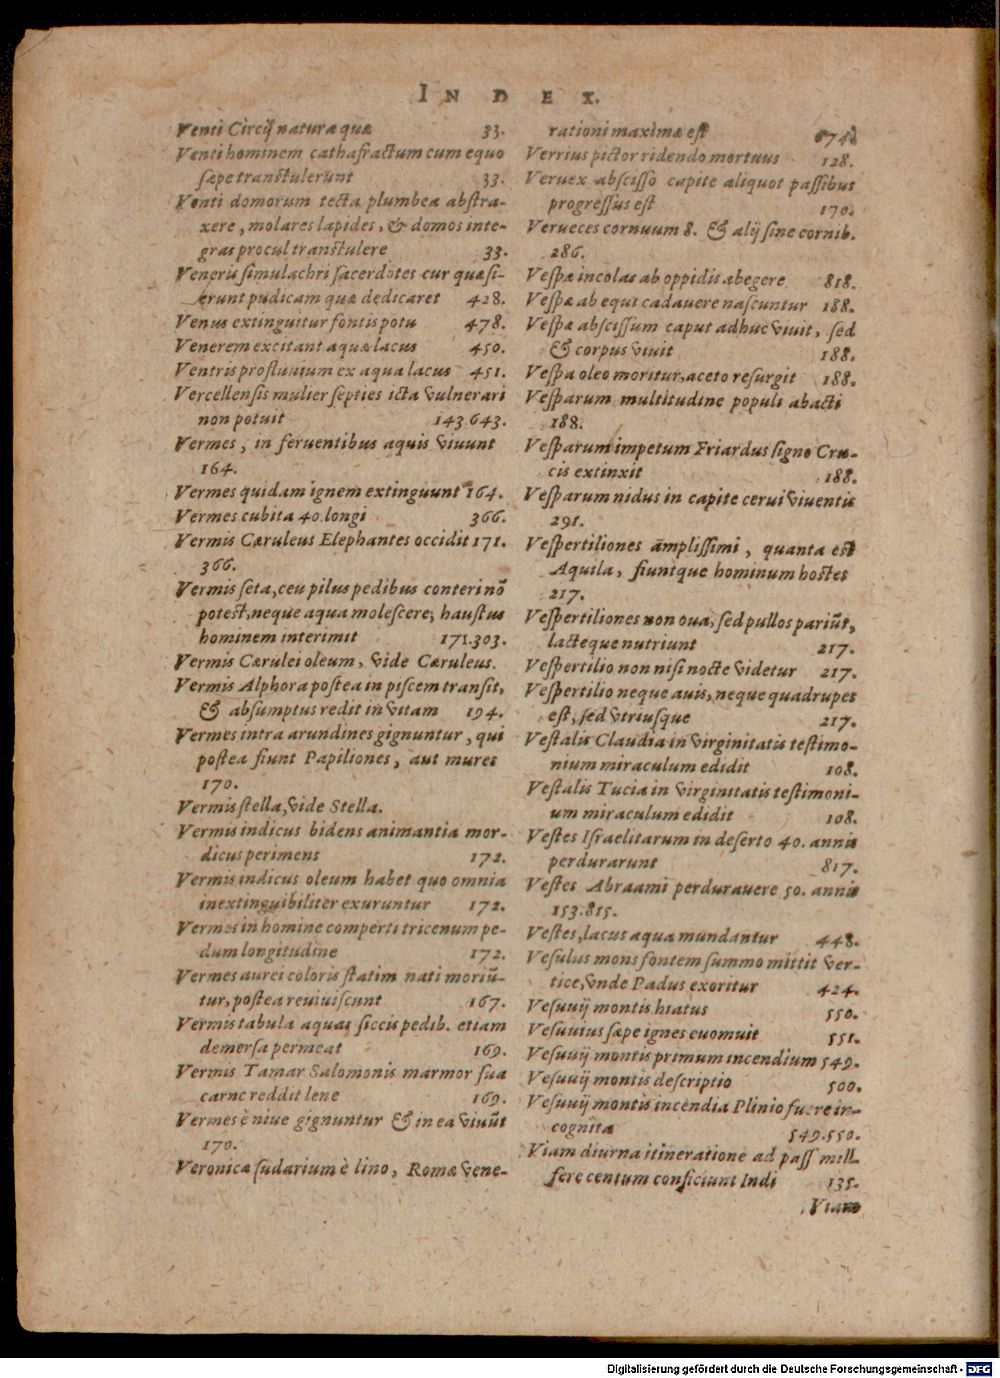 INDEX.
Venti Circij naturæ quæ 33.
Venti hominem cathafractum cum equo
sæpe transtulerunt 33.
Venti domorum tecta plumbea abstra-
xere, molares lapides, & domos inte-
gras procul transtulere 33.
Veneris simulachri sacerdotes cur quæsi-
erunt pudicam quæ dedicaret 428.
Venus extinguitur fontis potu 478.
Venerem excitant aquæ lacus 450.
Ventris profluuium ex aqua lacus 451.
Vercellensis mulier septies icta vulnerari
non potuit 143.643.
Vermes, in feruentibus aquis viuunt
164.
Vermes quidam ignem extinguunt 164.
Vermes cubita 40. longi 366.
Vermis Cæruleus Elephantes occidit 171.
366.
Vermis seta, ceu pilus pedibus conteri nõ
potest, neque aqua molescere; haustus
hominem interimit 171.303.
Vermis Cærulei oleum, vide Cæruleus.
Vermis Alphora postea in piscem transit,
& absumptus redit in vitam 194.
Vermes intra arundines gignuntur, qui
postea fiunt Papiliones, aut mures
170.
Vermis stella, vide Stella.
Vermis indicus bidens animantia mor-
dicus perimens 172.
Vermis indicus oleum habet quo omnia
inextinguibiliter exuruntur 172.
Vermes in homine comperti tricenum pe-
dum longitudine 172.
Vermes aurei coloris statim nati moriũ-
tur, postea reuiuiscunt 167.
Vermis tabula aquas siccis pedib. etiam
demersa permeat 169.
Vermis Tamar Salomonis marmor sua
carne reddit lene 169.
Vermes è niue gignuntur & in ea viuũt
170.
Veronicæ sudarium è lino, Romæ vene-
rationi maximæ est
Verrius pictor ridendo mortuus 128.
Veruex abscisso capite aliquot passibus
progressus est 170.
Verueces cornuum 8. & alij sine cornib.
286.
Vespæ incolas ab oppidis abegere 818.
Vespæ ab equi cadauere nascuntur 188.
Vespæ abscissum caput adhuc viuit, sed
& corpus viuit 188.
Vespa oleo moritur, aceto resurgit 188.
Vesparum multitudine populi abacti
188.
Vesparum impetum Friardus signo Cru-
cis extinxit 188.
Vesparum nidus in capite cerui viuentis
291.
Vespertiliones amplissimi, quanta est
Aquila, fiuntque hominum hostes
217.
Vespertiliones non oua, sed pullos pariũt,
lacteque nutriunt 217.
Vespertilio non nisi nocte videtur 217.
Vespertilio neque auis, neque quadrupes
est, sed vtriusque 217.
Vestalis Claudia in virginitatis testimo-
nium miraculum edidit 108.
Vestalis Tucia in virginitatis testimoni-
um miraculum edidit 108.
Vestes Israelitarum in deserto 40. annis
perdurarunt 817.
Vestes Abraami perdurauere 50. annis
153.815.
Vestes, lacus aqua mundantur 448.
Vesulus mons fontem summo mittit ver-
tice, vnde Padus exoritur 424.
Vesuuij montis hiatus 550.
Vesuuius sæpe ignes euomuit 551.
Vesuuij montis primum incendium 549.
Vesuuij montis descriptio 500.
Vesuuij montis incendia Plinio fuere in-
cognita 549.550.
Viam diurna itineratione ad pass mill.
fere centum conficiunt Indi 135.
Viam
Digitalisierung gefördert durch die Deutsche Forschungsgemeinschaft - DFG